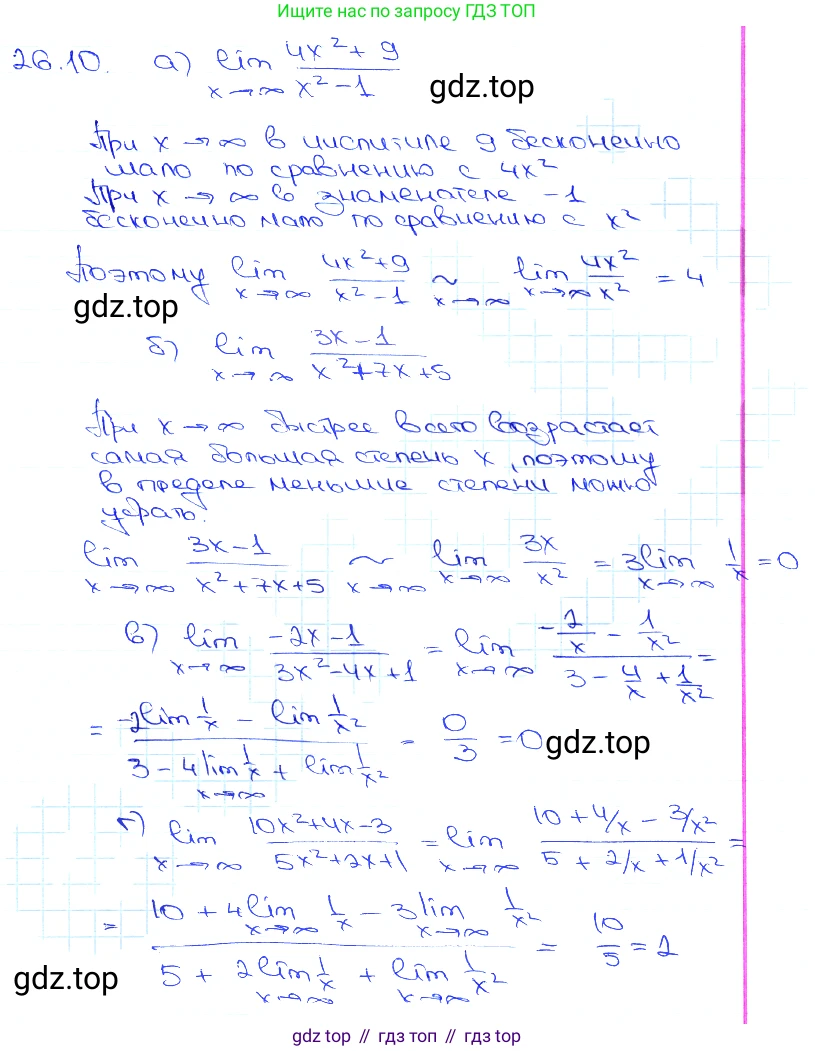 Ищите нас по запросу ГДЗ ТОП
26.10. а) lim x→∞ (4x² + 9)/(x² − 1)
gdz.top
При x → ∞ в числителе 9 бесконечно
мало по сравнению с 4x²
При x → ∞ в знаменателе −1
бесконечно мало по сравнению с x²
Поэтому lim x→∞ (4x² + 9)/(x² − 1) ~ x→∞ lim x→∞ 4x²/x² = 4
gdz.top
б) lim x→∞ (3x − 1)/(x² + 7x + 5)
При x → ∞ быстрее всего возрастает
самая большая степень x, поэтому
в пределе меньшие степени можно
убрать.
lim x→∞ (3x − 1)/(x² + 7x + 5) ~ x→∞ lim x→∞ 3x/x² = 3 lim x→∞ 1/x = 0
в) lim x→∞ (−2x − 1)/(3x² − 4x + 1) = lim x→∞ (−2/x − 1/x²)/(3 − 4/x + 1/x²) =
= (−2 lim 1/x − lim 1/x²)/(3 − 4 lim x→∞ 1/x + lim 1/x²) = 0/3 = 0
gdz.top
г) lim x→∞ (10x² + 4x − 3)/(5x² + 2x + 1) = lim x→∞ (10 + 4/x − 3/x²)/(5 + 2/x + 1/x²) =
= (10 + 4 lim x→∞ 1/x − 3 lim x→∞ 1/x²)/(5 + 2 lim x→∞ 1/x + lim x→∞ 1/x²) = 10/5 = 2
gdz.top
gdz top // гдз топ // gdz.top